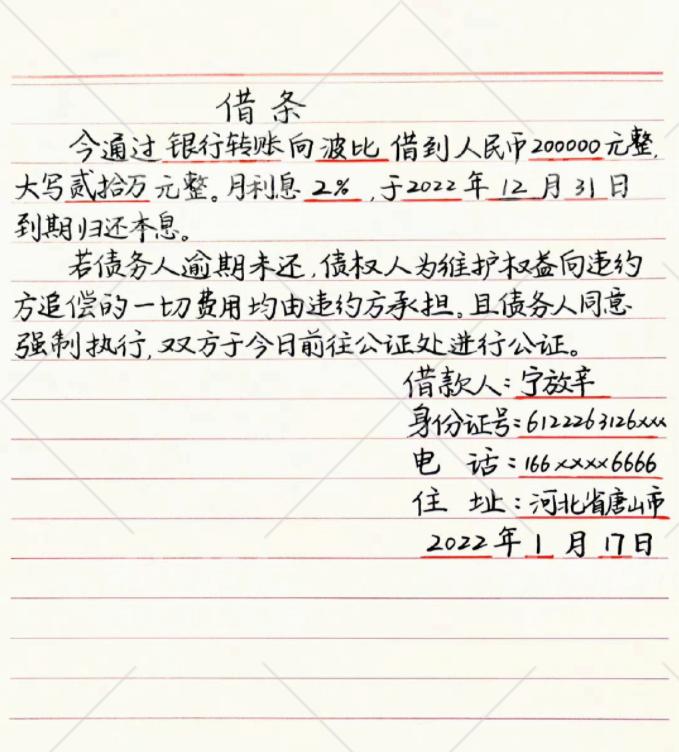 借条
今通过 银行转账 向 波比 借到人民币 200000 元整,
大写贰拾万元整。月利息 2% ,于2022年12月31日
到期归还本息。
若债务人逾期未还,债权人为维护权益向违约
方追偿的一切费用均由违约方承担。且债务人同意
强制执行,双方于今日前往公证处进行公证。
借款人:宁放辛
身份证号:6122263126xxx
电 话:166xxxx6666
住 址:河北省唐山市
2022年1月17日